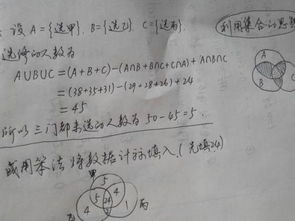 设 A={选甲}, B={选乙} C={选丙}
利用集合计思想
选修的人数为
A∪B∪C=(A+B+C)-(A∩B+B∩C+C∩A)+A∩B∩C
=(38+35+31)-(29+28+26)+24
=45
所以三门都未选的人数为 50-45=5.
或用算法将数据计算填入.(先填24)
甲
A
B
5
4 5 4
24
2
1
丙